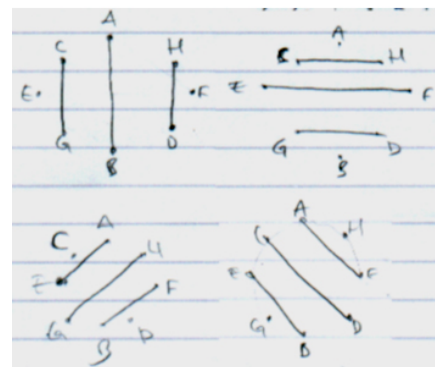 A
C H
E F
G D
B
A
C H
E F
G D
B
C A
H
E F
G D
B
A
C H
E F
G D
B